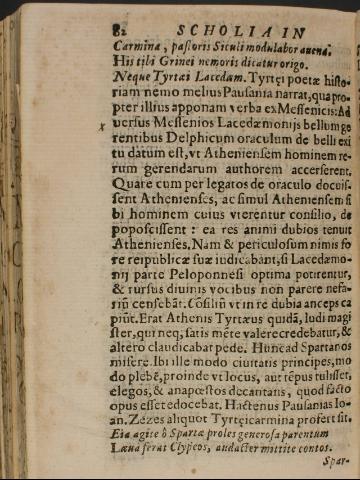 82 SCHOLIA IN
Carmina, pastoris Siculi modulabor auena.
His tibi Grinei nemoris dicatur origo.
Neque Tyrtæi Lacedam. Tyrtęi poetæ histo-
riam nemo melius Pausania narrat, qua pro-
pter illius apponam verba ex Messenicis: Ad
x uersus Messenios Lacedæmonijs bellum ge
rentibus Delphicum oraculum de belli exi
tu datum est, vt Atheniensem hominem re-
rum gerendarum authorem accerserent.
Quare cum per legatos de oraculo docuis-
sent Athenienses, ac simul Atheniensem si
bi hominem cuius vterentur consilio, de
poposcissent : ea res animi dubios tenuit
Athenienses. Nam & periculosum nimis fo
re reipublicæ suæ iudicabant, si Lacedæmo-
nij parte Peloponnesi optima potirentur,
& rursus diuinis vocibus non parere nefa-
riū censebāt. Cōsiliū vt in re dubia anceps ca
piūt. Erat Athenis Tyrtæus quidā, ludi magi
ster, qui neq; satis mēte valere credebatur, &
altero claudicabat pede. Hunc ad Spartanos
misere. Ibi ille modo ciuitatis principes, mo
do plebē, proinde vt locus, aut tēpus tulisset,
elegos, & anapœstos decantans, quod facto
opus esset edocebat. Hactenus Pausanias. Io-
an. Zezes aliquot Tyrtęi carmina profert sit.
Eia agite ô Spartæ proles generosa parentum
Læua ferat Clypeos, audacter mittite contos.
Spar-